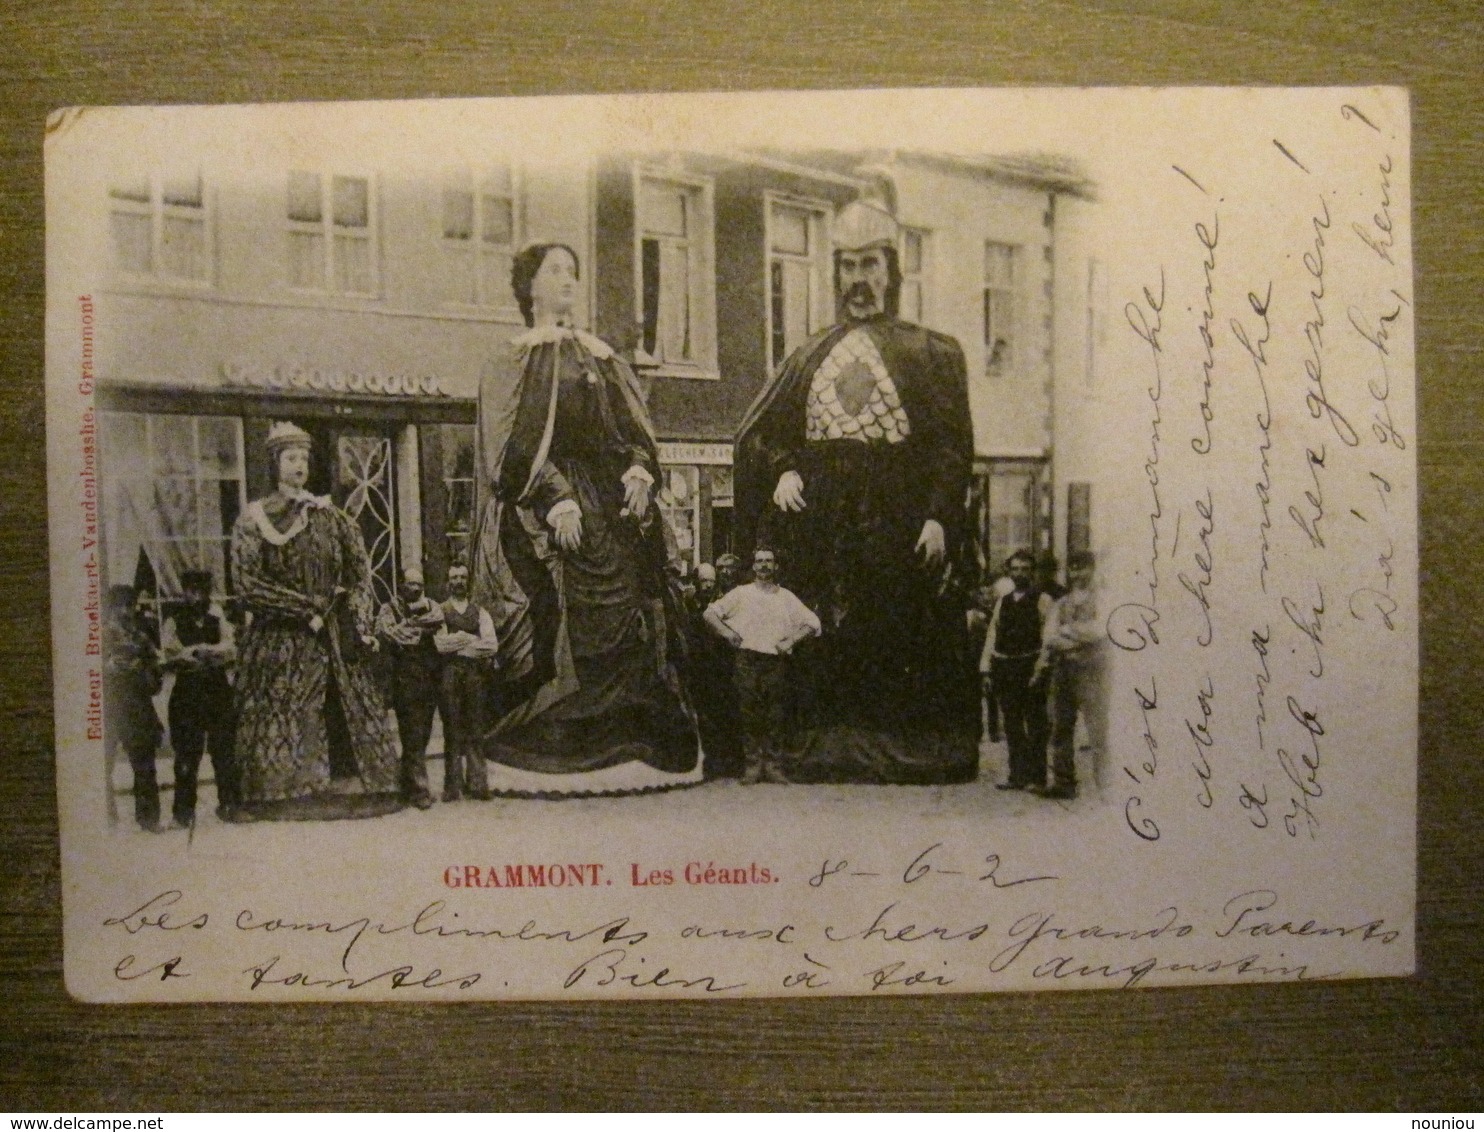 Editeur Broekaert-Vandenbossche, Grammont
GRAMMONT. Les Géants. 8-6-2
Les compliments aux chers Grands Parents
et tantes. Bien à toi Augustin
C'est Dimanche!
Ma chère cousine!
A ma manche!
Heb ik het gezien!
Da's geh, hein?
nouniou
delcampe.net